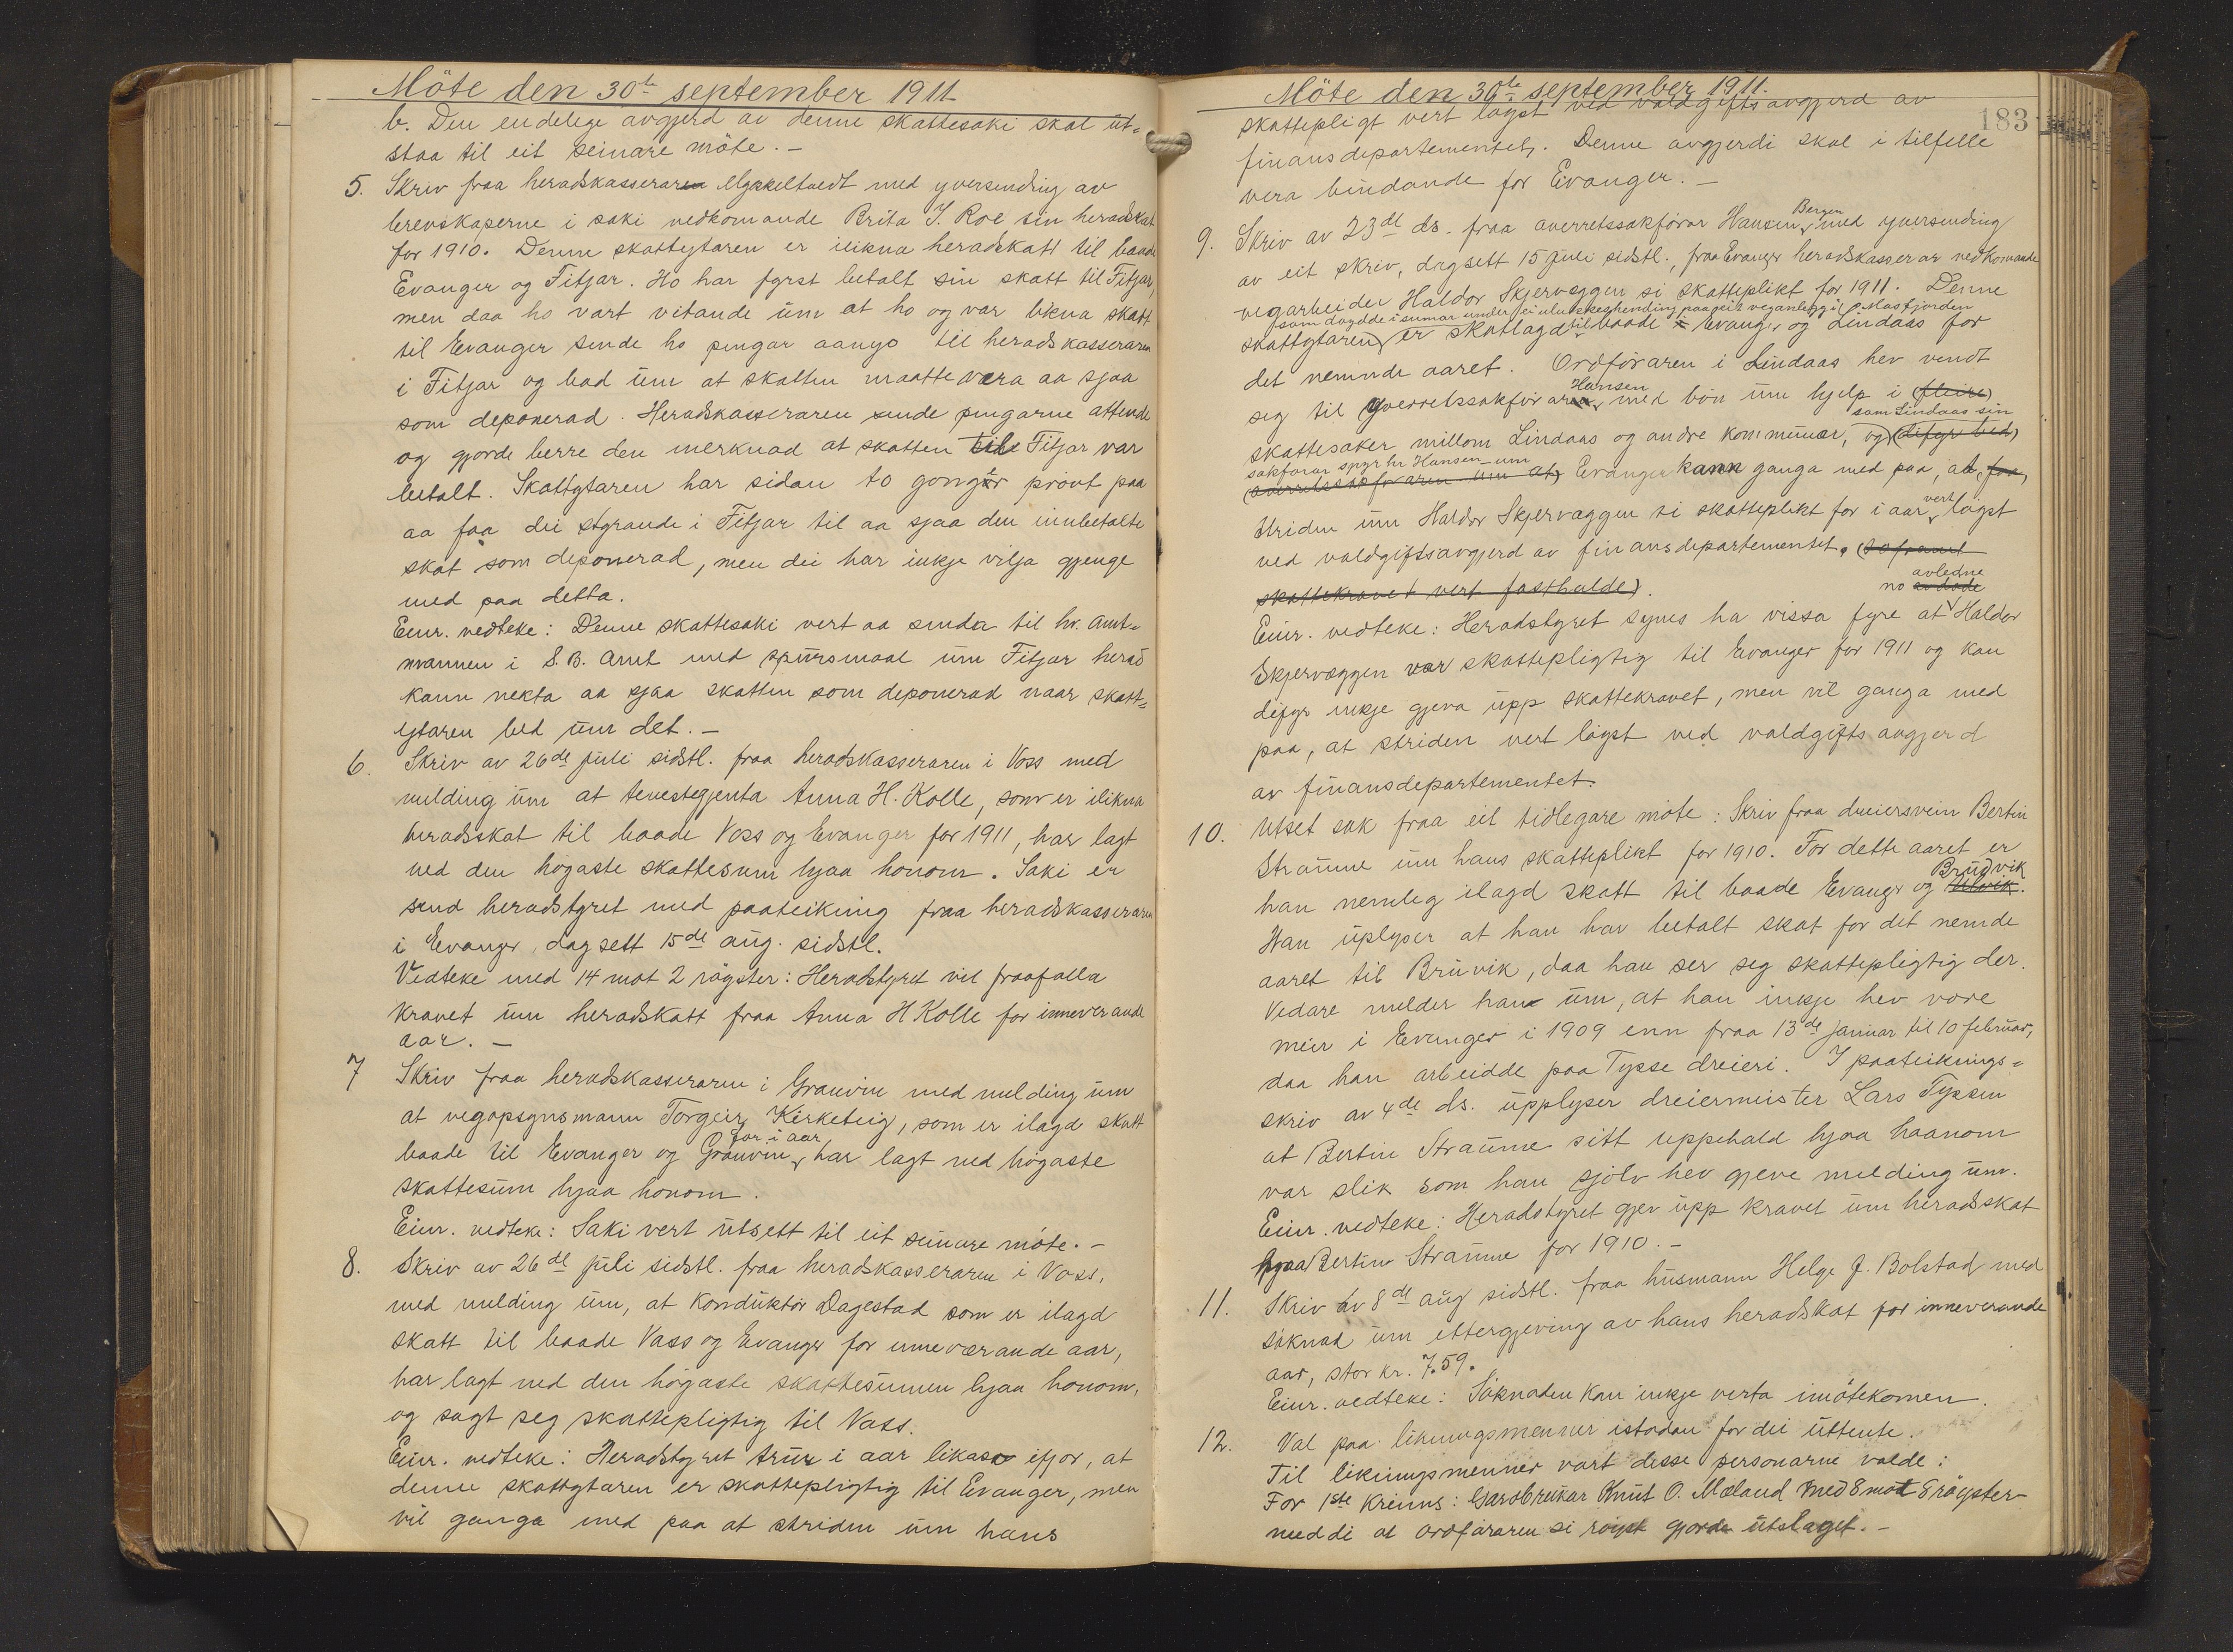 Möte den 30te september 1911.
b. Den endelege avgjerd av denne skattesaki skal ut=
staa til eit seinare möte. –
5. Skriv fraa heradskasseraren Myrkeltvedt med yversending av
brevskaperne i saki vedkomande Brita I. Roe sin heradskat
for 1910. Denne skattytaren er ilikna heradskatt til baade
Evanger og Fitjar. Ho har fyrst betalt sin skatt til Fitjar,
men daa ho vart vitande um at ho og var likna skatt
til Evanger sende ho pengar aanyo til heradskasseraren
i Fitjar og bad um at skatten maatte vera aa sjaa
som deponerad. Heradskasseraren sende pengarne attende
og gjorde berre den merknad at skatten til Fitjar var
betalt. Skattytaren har sidan to gongor prövt paa
aa faa dei styrande i Fitjar til aa sjaa den innbetalte
skat som deponerad, men dei har inkje vilja gjenge
med paa detta.
Einr. vedteke: Denne skattesaki vert aa senda til hr. Amt=
mannen i S. B. Amt med spursmaal um Fitjar herad
kann nekta aa sjaa skatten som deponerad naar skatt=
ytaren bed um det. –
6. Skriv av 26de juli sidstl. fraa heradskasseraren i Voss med
melding um at tenestegjenta Anna H. Kolle, som er ilikna
heradsskat til baade Voss og Evanger for 1911, har lagt
ned den högaste skattesum hjaa honom. Saki er
send heradstyret med paateikning fraa heradskasseraren
i Evanger, dagsett 15de aug. sidstl.
Vedteke med 14 mot 2 röyster: Heradstyret vil fraafalla
kravet um heradskatt fraa Anna H Kolle for inneverande
aar. –
7 Skriv fraa heradskasseraren i Granvin med melding um
at vegopsynsmann Torgeir Kirketeig, som er ilagd skatt
for i aar
baade til Evanger og Granvin, har lagt ned högaste
skattesum hjaa honom.
Einr. vedteke: Saki vert utsett til eit seinare möte. –
8. Skriv av 26de juli sidstl. fraa heradskasseraren i Voss,
med melding um, at konduktör Dagestad som er ilagd
skatt til baade Vass og Evanger for inneværande aar,
har lagt ned den högaste skattesummen hjaa honom,
og sagt seg skattepligtig til Vass.
Einr. vedteke: Heradstyret trur i aar likaso ifjor, at
denne skattytaren er skattepligtig til Evanger, men
vil ganga med paa at striden um hans
Möte den 30te september 1911.
183
skattepligt vert löyst ved valdgiftsavgjerd av
finansdepartementet. Denne avgjerdi skal i tilfelle
vera bindande for Evanger. –
Bergen
9. Skriv av 23de ds. fraa overretssakförar Hansen, med yversending
av eit skriv, dagsett 15 juli sidstl., fraa Evanger heradskasserar vedkomande
vegarbeider Haldor Skjerveggen si skatteplikt for 1911. Denne
som döydde i sumar under ei ulukkeshending paa eit veganlegg i Masfjorden
skattytaren er skatlagd til baade i Evanger og Lindaas for
det nemnde aaret. Ordföraren i Lindaas hev vendt
Hansen
seg til yverretssakförar med bön um hjelp i (fleire)
som Lindaas sin
skattesaker millom Lindaas og andre kommunar, og (difyr bed)
sakförar spyr hr Hansen um
(overretssakföraren um at) Evanger kann ganga med paa, at faa,
vert
striden um Haldor Skjervæggen si skatteplikt for i aar löyst
ved valdgiftsavgjerd av finansdepartementet. (soframt
skattekravet vert fasthalde).
avledne
no avdöde
Einr. vedteke: Heradstyret synes ha vissa fyre at Haldor
Skjervæggen var skattepligtig til Evanger for 1911 og kan
difyr inkje gjeva upp skattekravet, men vil ganga med
paa, at striden vert löyst ved valdgiftsavgjerd
av finansdepartementet.
10. Utset sak fraa eit tidlegare möte: Skriv fraa dreiersvein Bertin
Straume um hans skatteplikt for 1910. For dette aaret er
Brudvik
han nemleg ilagd skatt til baade Evanger og Ulvik.
Han uplyser at han har betalt skat for det nemde
aaret til Bruvik, daa han ser seg skattepligtig der.
Vedare melder han um, at han inkje hev vore
meir i Evanger i 1909 enn fraa 13de januar til 10 februar,
daa han arbeidde paa Tysse dreieri. I paateiknings=
skriv av 4de ds. upplyser dreiermeister Lars Tyssen
at Bertin Straume sitt uppehald hjaa haanom
var slik som han sjölv hev gjeve melding um.
Einr. vedteke: Heradstyret gjev upp kravet um heradsskat
hjaa Bertin Straume for 1910. –
11. Skriv av 8de aug sidstl. fraa husmann Helge J. Bolstad med
söknad um ettergjeving av hans heradskat for inneverande
aar, stor kr. 7.59.
Einr. vedteke: Söknaden kan inkje verta imötekomen.
12. Val paa likningsmenner istadan for dei uttente.
Til likningsmenner vart desse personarne valde:
For 1ste Kreins: Gardbrukar Knut O. Mæland med 8 mot 8 röyster
med di at ordföraren si röyst gjorde utslaget. –